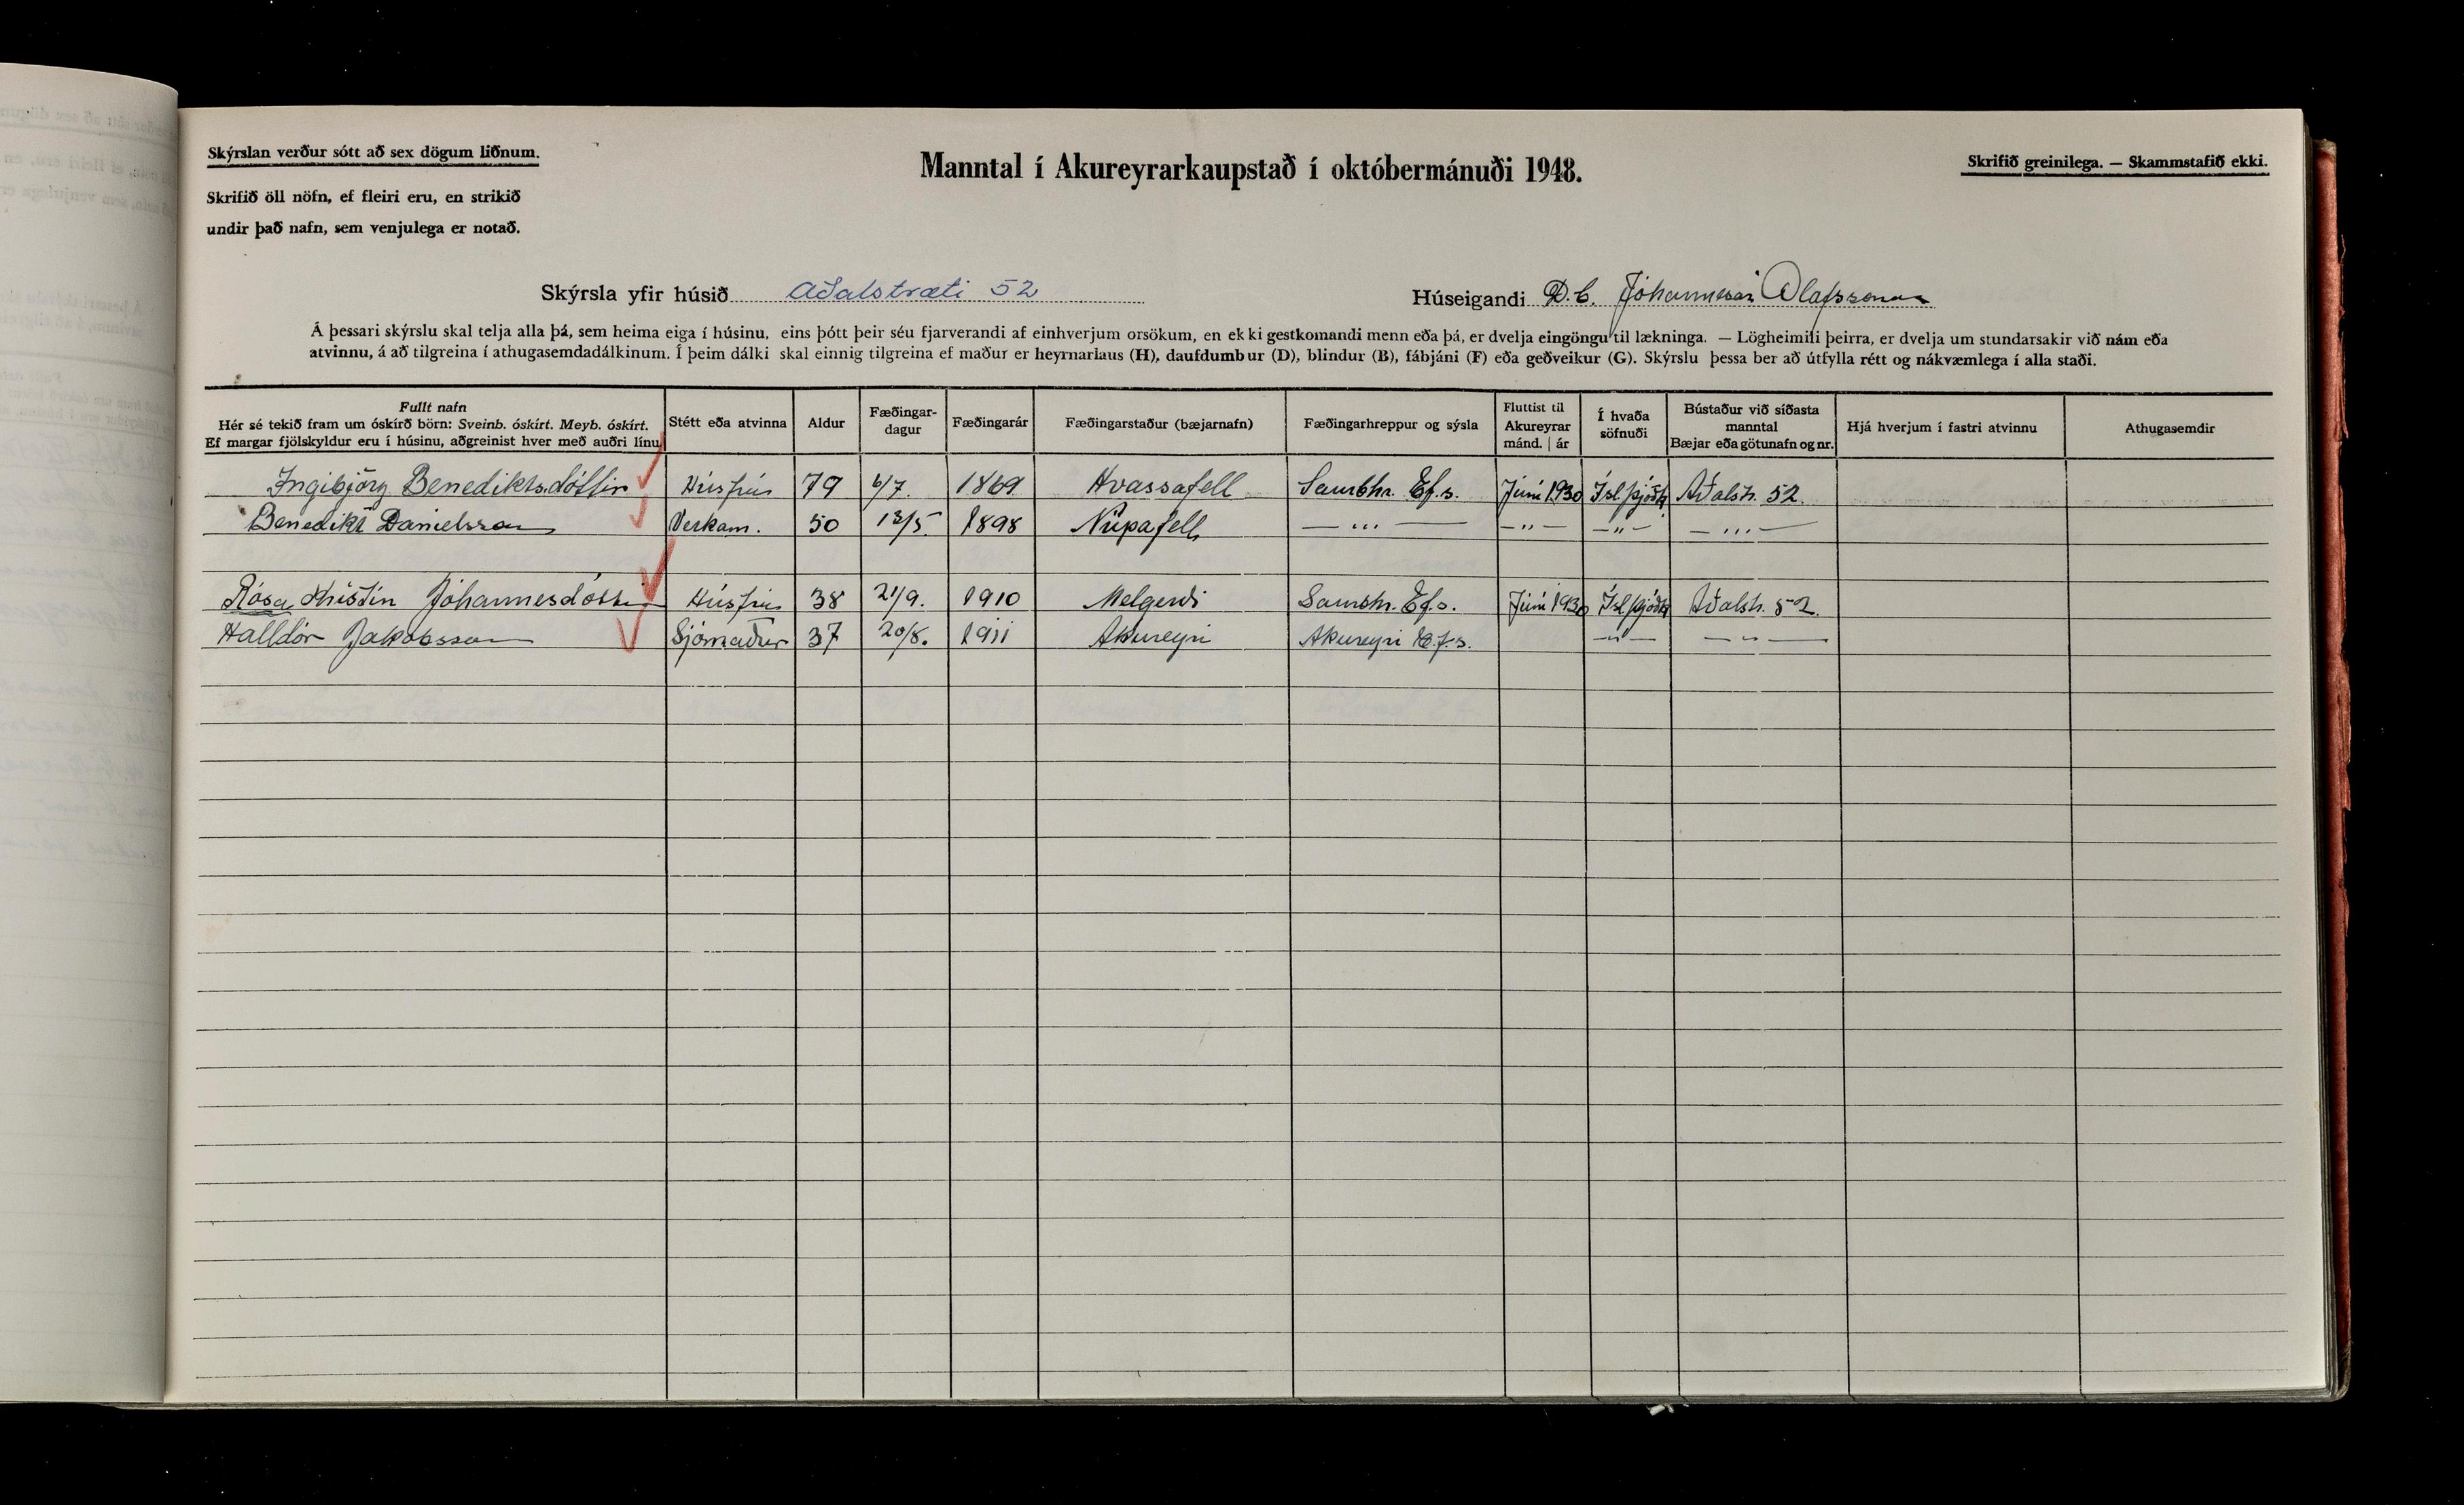 Skýrslan verður sótt að sex dögum liðnum.
Skrifið öll nöfn, ef fleiri eru, en strikið
undir það nafn, sem venjulega er notað.
Manntal í Akureyrarkaupstað í októbermánuði 1948.
Skrifið greinilega. — Skammstafið ekki.
Skýrsla yfir húsið Aðalstræti 52
Húseigandi D.b. Jóhannesar Ólafssonar
Á þessari skýrslu skal telja alla þá, sem heima eiga í húsinu, eins þótt þeir séu fjarverandi af einhverjum orsökum, en ekki gestkomandi menn eða þá, er dvelja eingöngu til lækninga. — Lögheimili þeirra, er dvelja um stundarsakir við nám eða
atvinnu, á að tilgreina í athugasemdadálkinum. Í þeim dálki skal einnig tilgreina ef maður er heyrnarlaus (H), daufdumbur (D), blindur (B), fábjáni (F) eða geðveikur (G). Skýrslu þessa ber að útfylla rétt og nákvæmlega í alla staði.
Fullt nafn
Hér sé tekið fram um óskírð börn: Sveinb. óskírt. Meyb. óskírt.
Ef margar fjölskyldur eru í húsinu, aðgreinist hver með auðri línu
Stétt eða atvinna
Aldur
Fæðingar-
dagur
Fæðingarár
Fæðingarstaður (bæjarnafn)
Fæðingarhreppur og sýsla
Fluttist til
Akureyrar
mánd. | ár
Í hvaða
söfnuði
Bústaður við síðasta
manntal
Bæjar eða götunafn og nr.
Hjá hverjum í fastri atvinnu
Athugasemdir
Ingibjörg Benediktsdóttir Húsfrú 79 6/7. 1869 Hvassafell Saurbhr. Ef.s. Júní 1930 Ísl. þjóðk Aðalstr. 52
Benedikt Danielsson Verkam. 50 13/5. 1898 Núpafell — ,,, — — ,, — — ,, — — ,,, —
Rósa Kristín Jóhannesdóttir Húsfrú 38 21/9. 1910 Melgerði Saurbhr. Ef.s. Júní 1930 Ísl. þjóðk Aðalstr. 52.
Halldór Jakobsson Sjómaður 37 20/8. 1911 Akureyri Akureyri E.f.s. — ,, — — ,, —